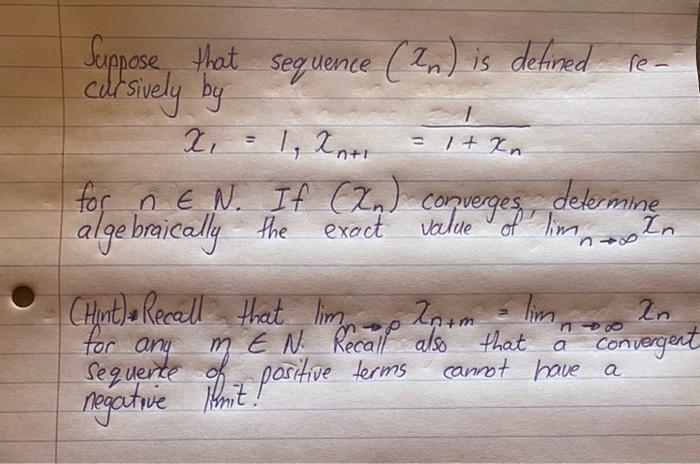 Suppose that sequence (xₙ) is defined re-
cursively by
x₁ = 1, xₙ₊₁ = 1/(1 + xₙ)
for n ∈ N. If (xₙ) converges, determine
algebraically the exact value of limₙ→∞ xₙ
(Hint). Recall that limₙ→∞ xₙ₊ₘ = limₙ→∞ xₙ
for any m ∈ N. Recall also that a convergent
sequence of positive terms cannot have a
negative limit!